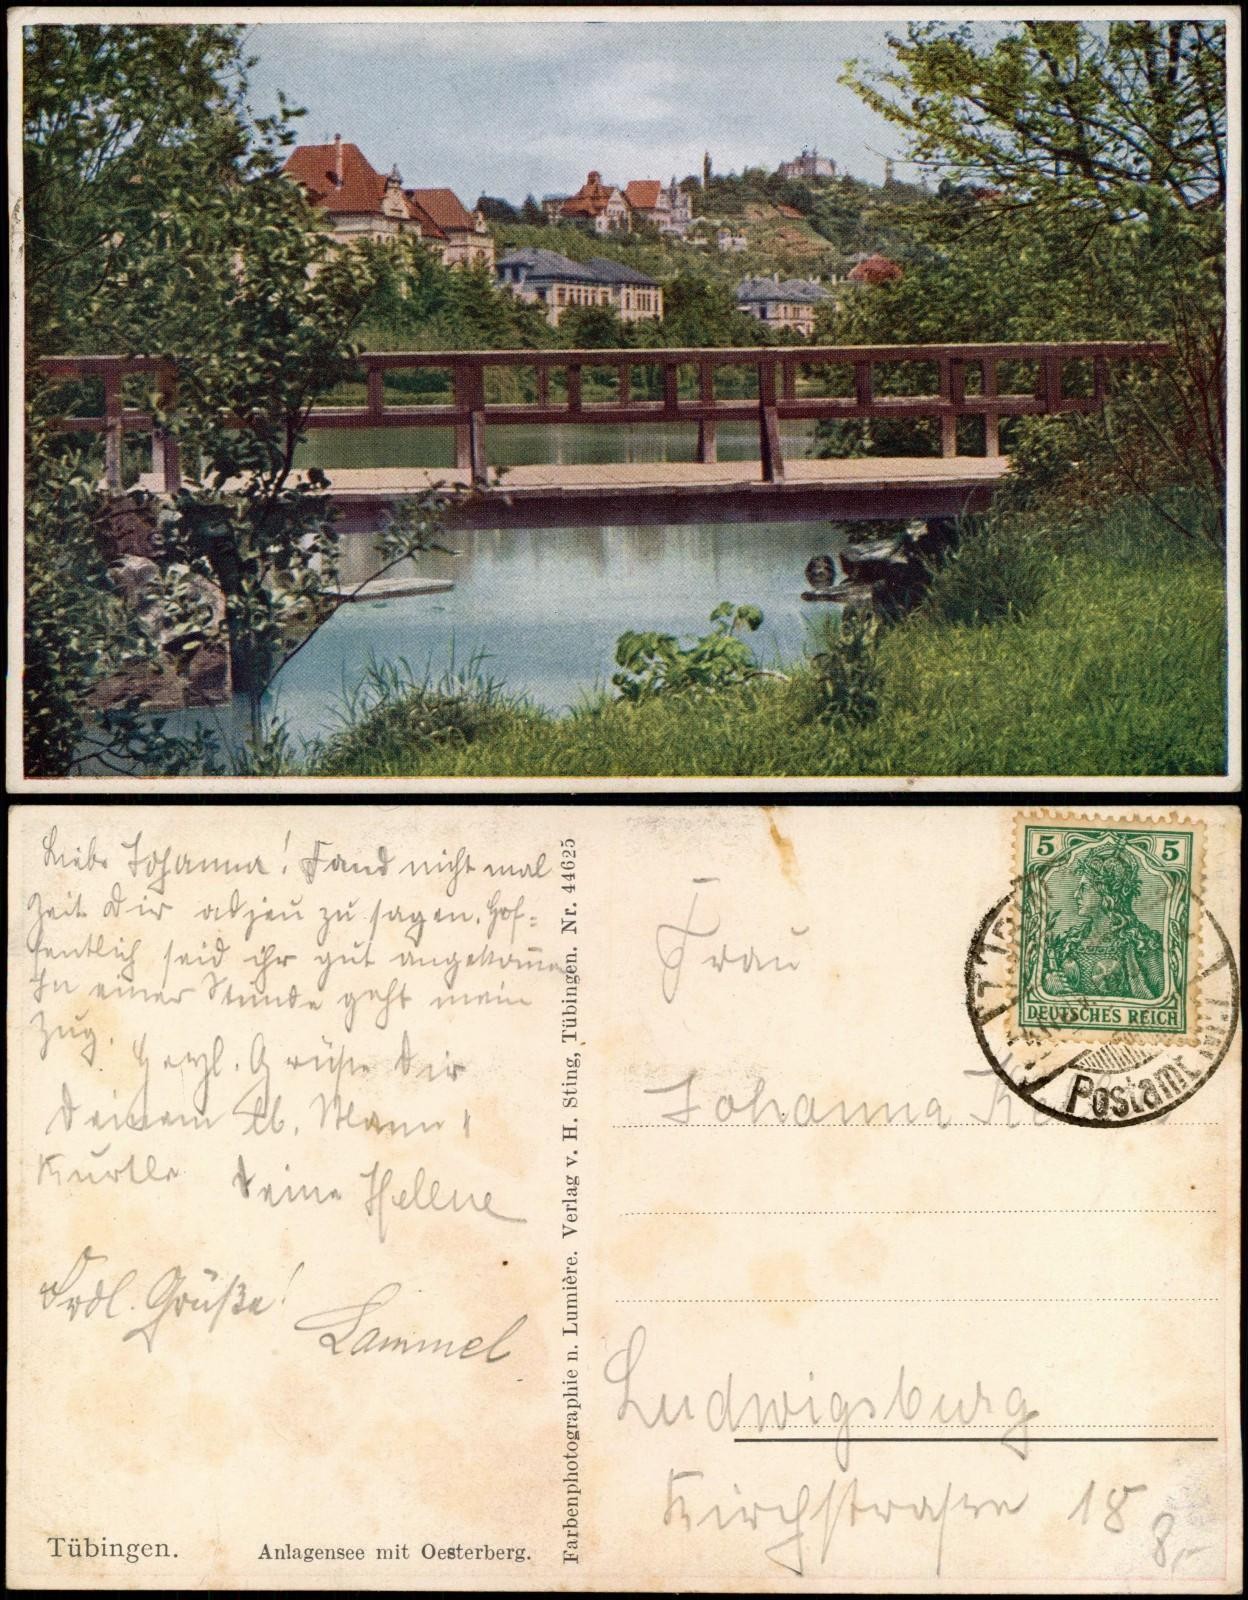 Liebe Johanna! Fand nicht mal
Zeit Dir adjeu zu sagen. Hof-
fentlich seid ihr gut angekommen
In einer Stunde geht mein
Zug. Herzl. Grüße Dir
Deinem lb. Mann u
Kurtle Deine Hellne
Frdl. Grüße!
Lammel
Tübingen. Anlagensee mit Oesterberg.
Farbenphotographie n. Lumière. Verlag v. H. Sting, Tübingen. Nr. 44625
5 5
DEUTSCHES REICH
Postamt
Frau
Johanna
Ludwigsburg
Kirchstrasse 18
8,-